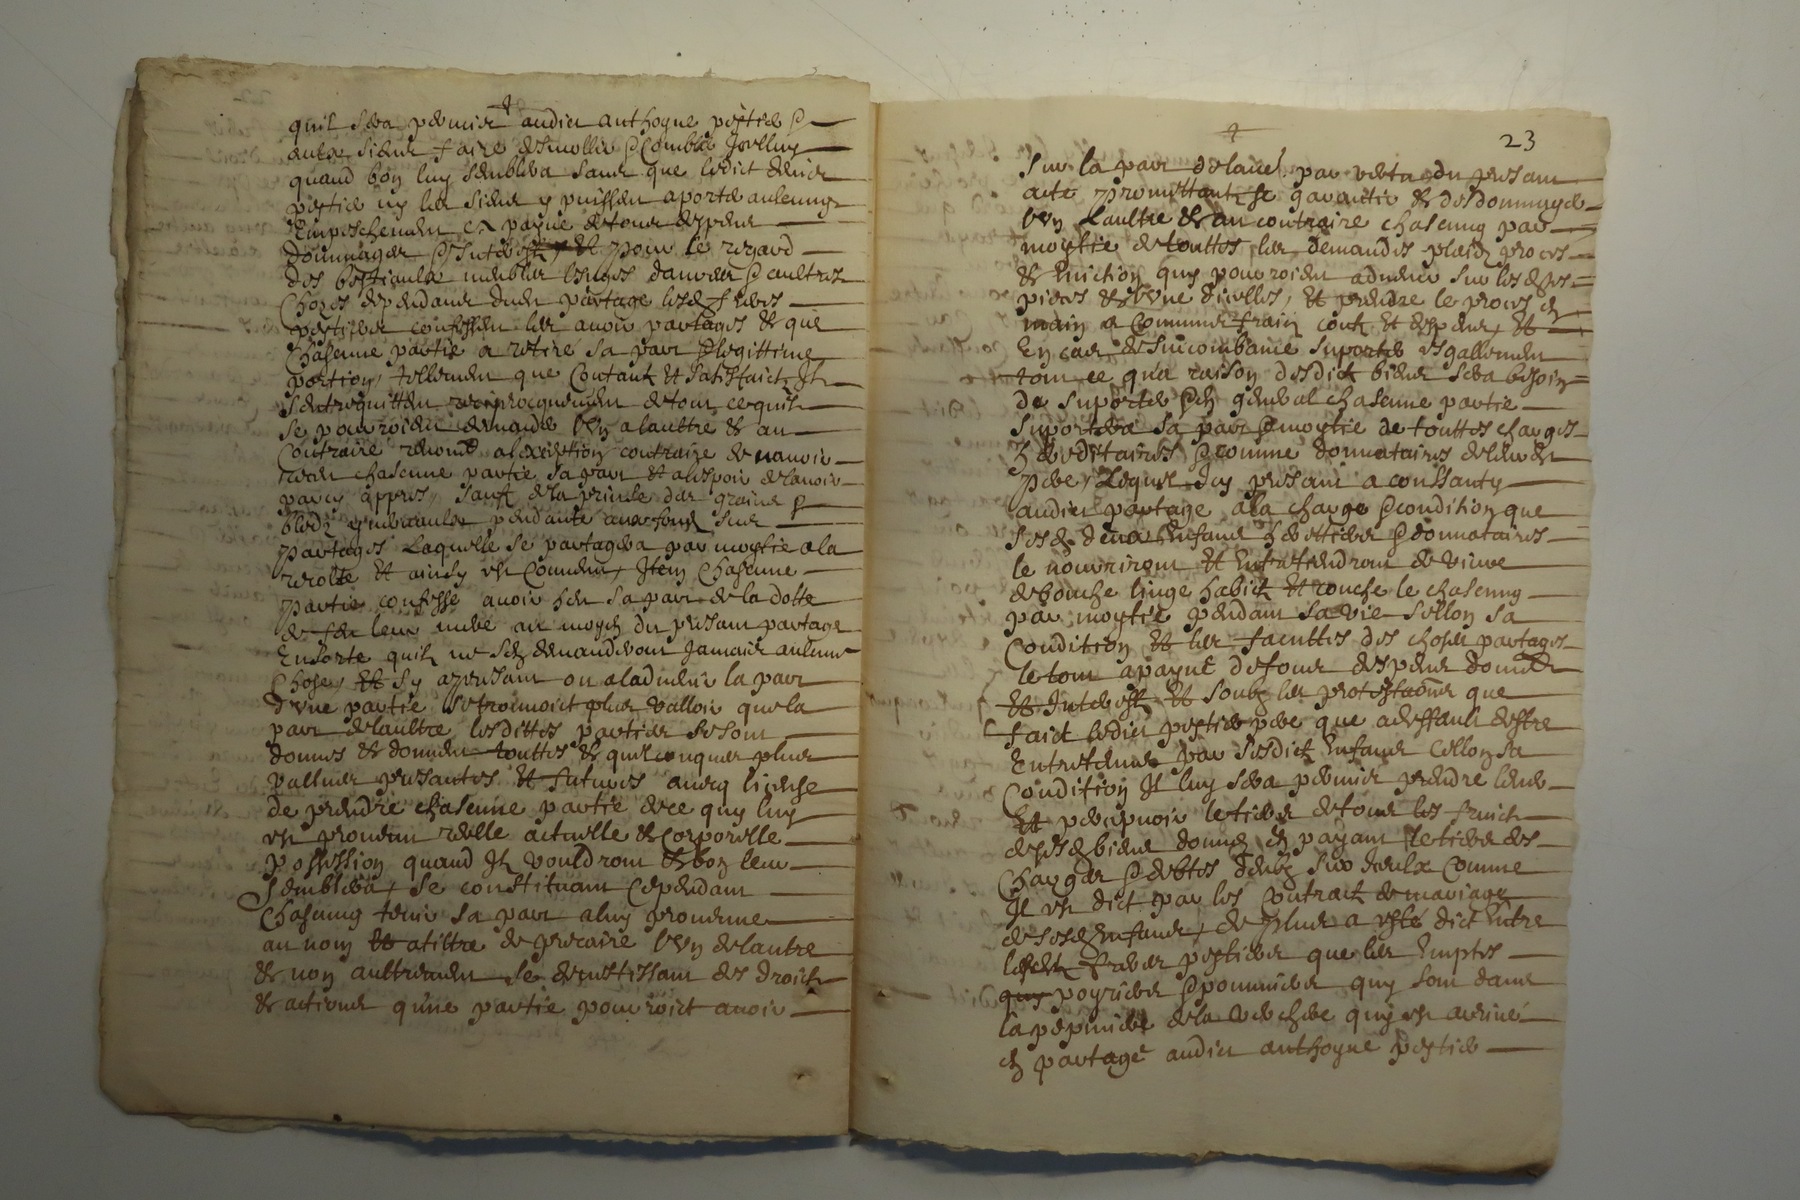 quil sera permier audict anthoyne pestier &
autre sieur faire desmollir & combler Icelluy
quand bon luy semblera sans que ledict denier
pestier ny les siens y puissent aporter aulcung
Empeschement et a payne de tous despens
dommages & Interestz, et pour le regard
des bestiaulx meubles lesnes danrees & aultres
choses dependans dudit partage lesdictz freres
pestier confessent les avoir partages & que
chascune partie a retiré sa part & legittime
portion, tellement que contantz et satisfaictz Ilz
sentrequittent reciprocquement de tout ce quilz
se pourroient demander lung a lautre & au
contraire renoncé a lexeption contraire de navoir
receu chascune partie sa part et a lespoir de lavoir
par cy appres, sauf de la prinse des grains &
bledz pendante aux fondz sans
partages Laquelle se partagera par moytie a la
recolte et ainsy est convenu, Item chascune
partie confesse avoir heu sa part de la dotte
de feu leur mere au moyen du presant partage
Ensorte quilz ne sen demanderont Jamais aulcune
chose, et sy a presant ou a ladvenir la part
dune partie se trouvoict plus valloir que la
part de laultre lesdittes parties se sont
donnes & donnent touttes & quelconques plus
vallues presantes et futures avecq license
de prendre chascune partie de ce quy luy
est provenu reelle actuelle & corporelle
possession quand Ilz vouldront & bon leur
semblera, se constituant cependant
chascung tenir sa part a luy provenue
au nom et a tiltre de precaire lung de lautre
& non aultrement se demettissant des droictz
& actions qune partie pourroict avoir
23
sur la part de lautre par vertu du presant
acte promettant se garantir & desdommager
lung Laultre & au contraire chascung par
moytie de touttes les demandes plaidz proces
& Eviction quy pourroient advenir sur lesdictes
pieces & une dicelles, et prendre le proces en
main a communs fraiz coutz et despens, et
En cas de succombance suporter esgallement
tout ce qua raison desdictz biens sera besoin
de suporter & en general chascune partie
suportera sa part & moytie de touttes charges
hereditaires & comme donnataires de leurdit
pere, Lequel Icy presant a consanty
audict partage a la charge & condition que
sesdictz deux Enfans heritiers & donnataires
le nourriront et Entretiendront de vivre
de bouche linge habict et couche le chascung
par moytie pendant sa vie sellon sa
condition et les facultes des choses partages
le tout a payne de tous despens dommages
et Interestz et soubz les protestations que
faict ledict pestier pere que a deffault destre
Entretenu par sesdictz Enfans cellon sa
condition Il luy sera permier prendre lever
et percepvoir le tiers de tous les fruictz
de sesdictz biens donnes en payant le tiers des
charges & debtes deubz sur Iceulx comme
Il est dict par les contractz de mariage
de sesdictz Enfans, de plus a esté dict Entre
lesdictz freres pestier que les Emptes
poyriers & pommiers quy sont dans
la pepiniere de la verchere quy est advenue
en partage audict anthoyne pestier